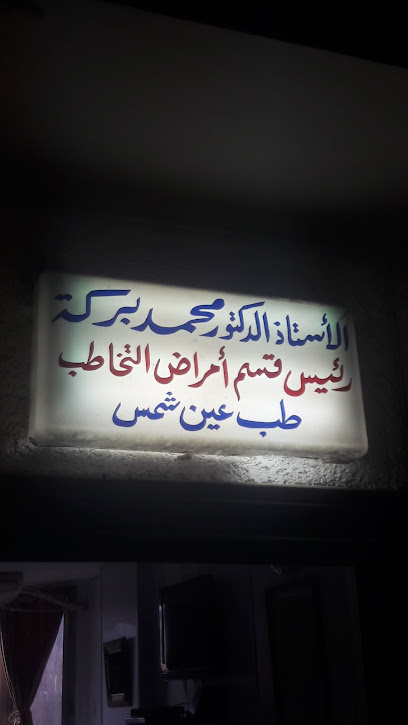 الأستاذ الدكتور محمد بركة
رئيس قسم أمراض التخاطب
طب عين شمس